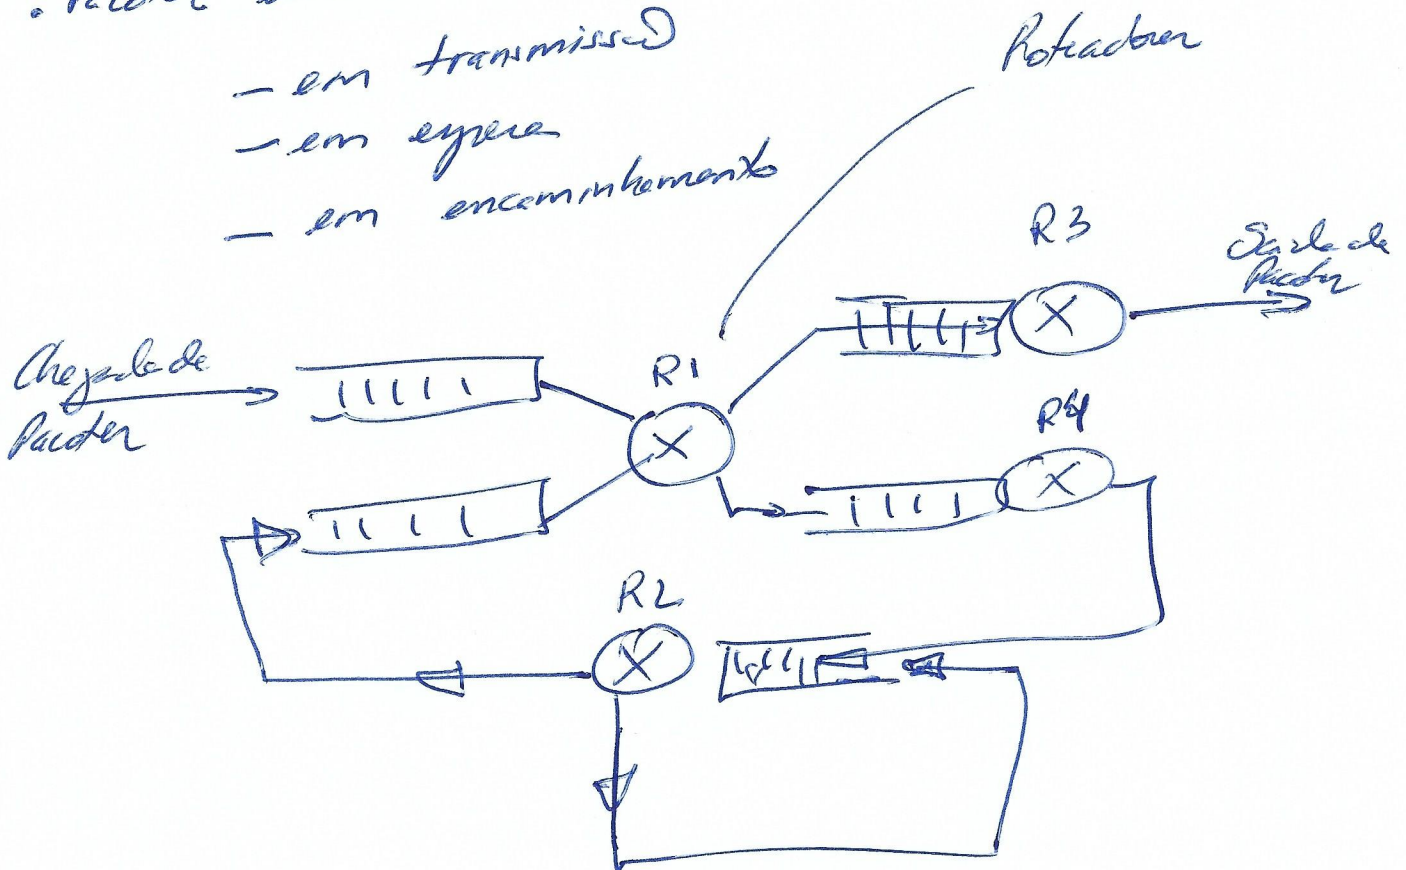 - em transmissão
- em espera
- em encaminhamento
Roteadores
R3
Saída de
Pacotes
Chegada de
Pacotes
R1
R4
R2